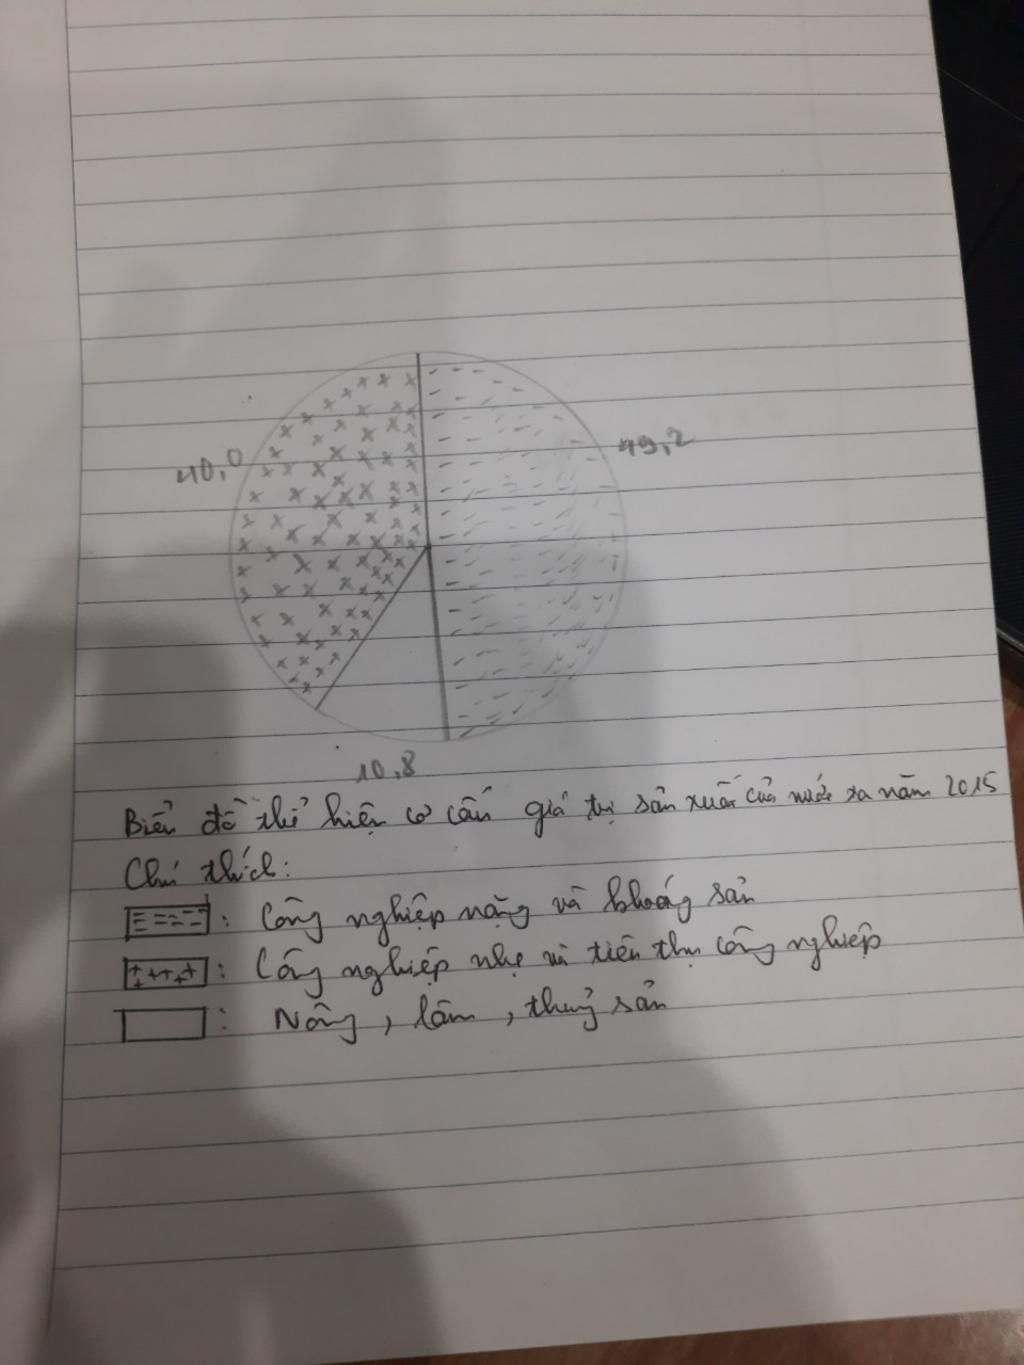 40,0
49,2
10,8
Biểu đồ thể hiện cơ cấu giá trị sản xuất của nước ta năm 2015
Chú thích:
: Công nghiệp nặng và khoáng sản
: Công nghiệp nhẹ và tiểu thụ công nghiệp
: Nông, lâm, thuỷ sản